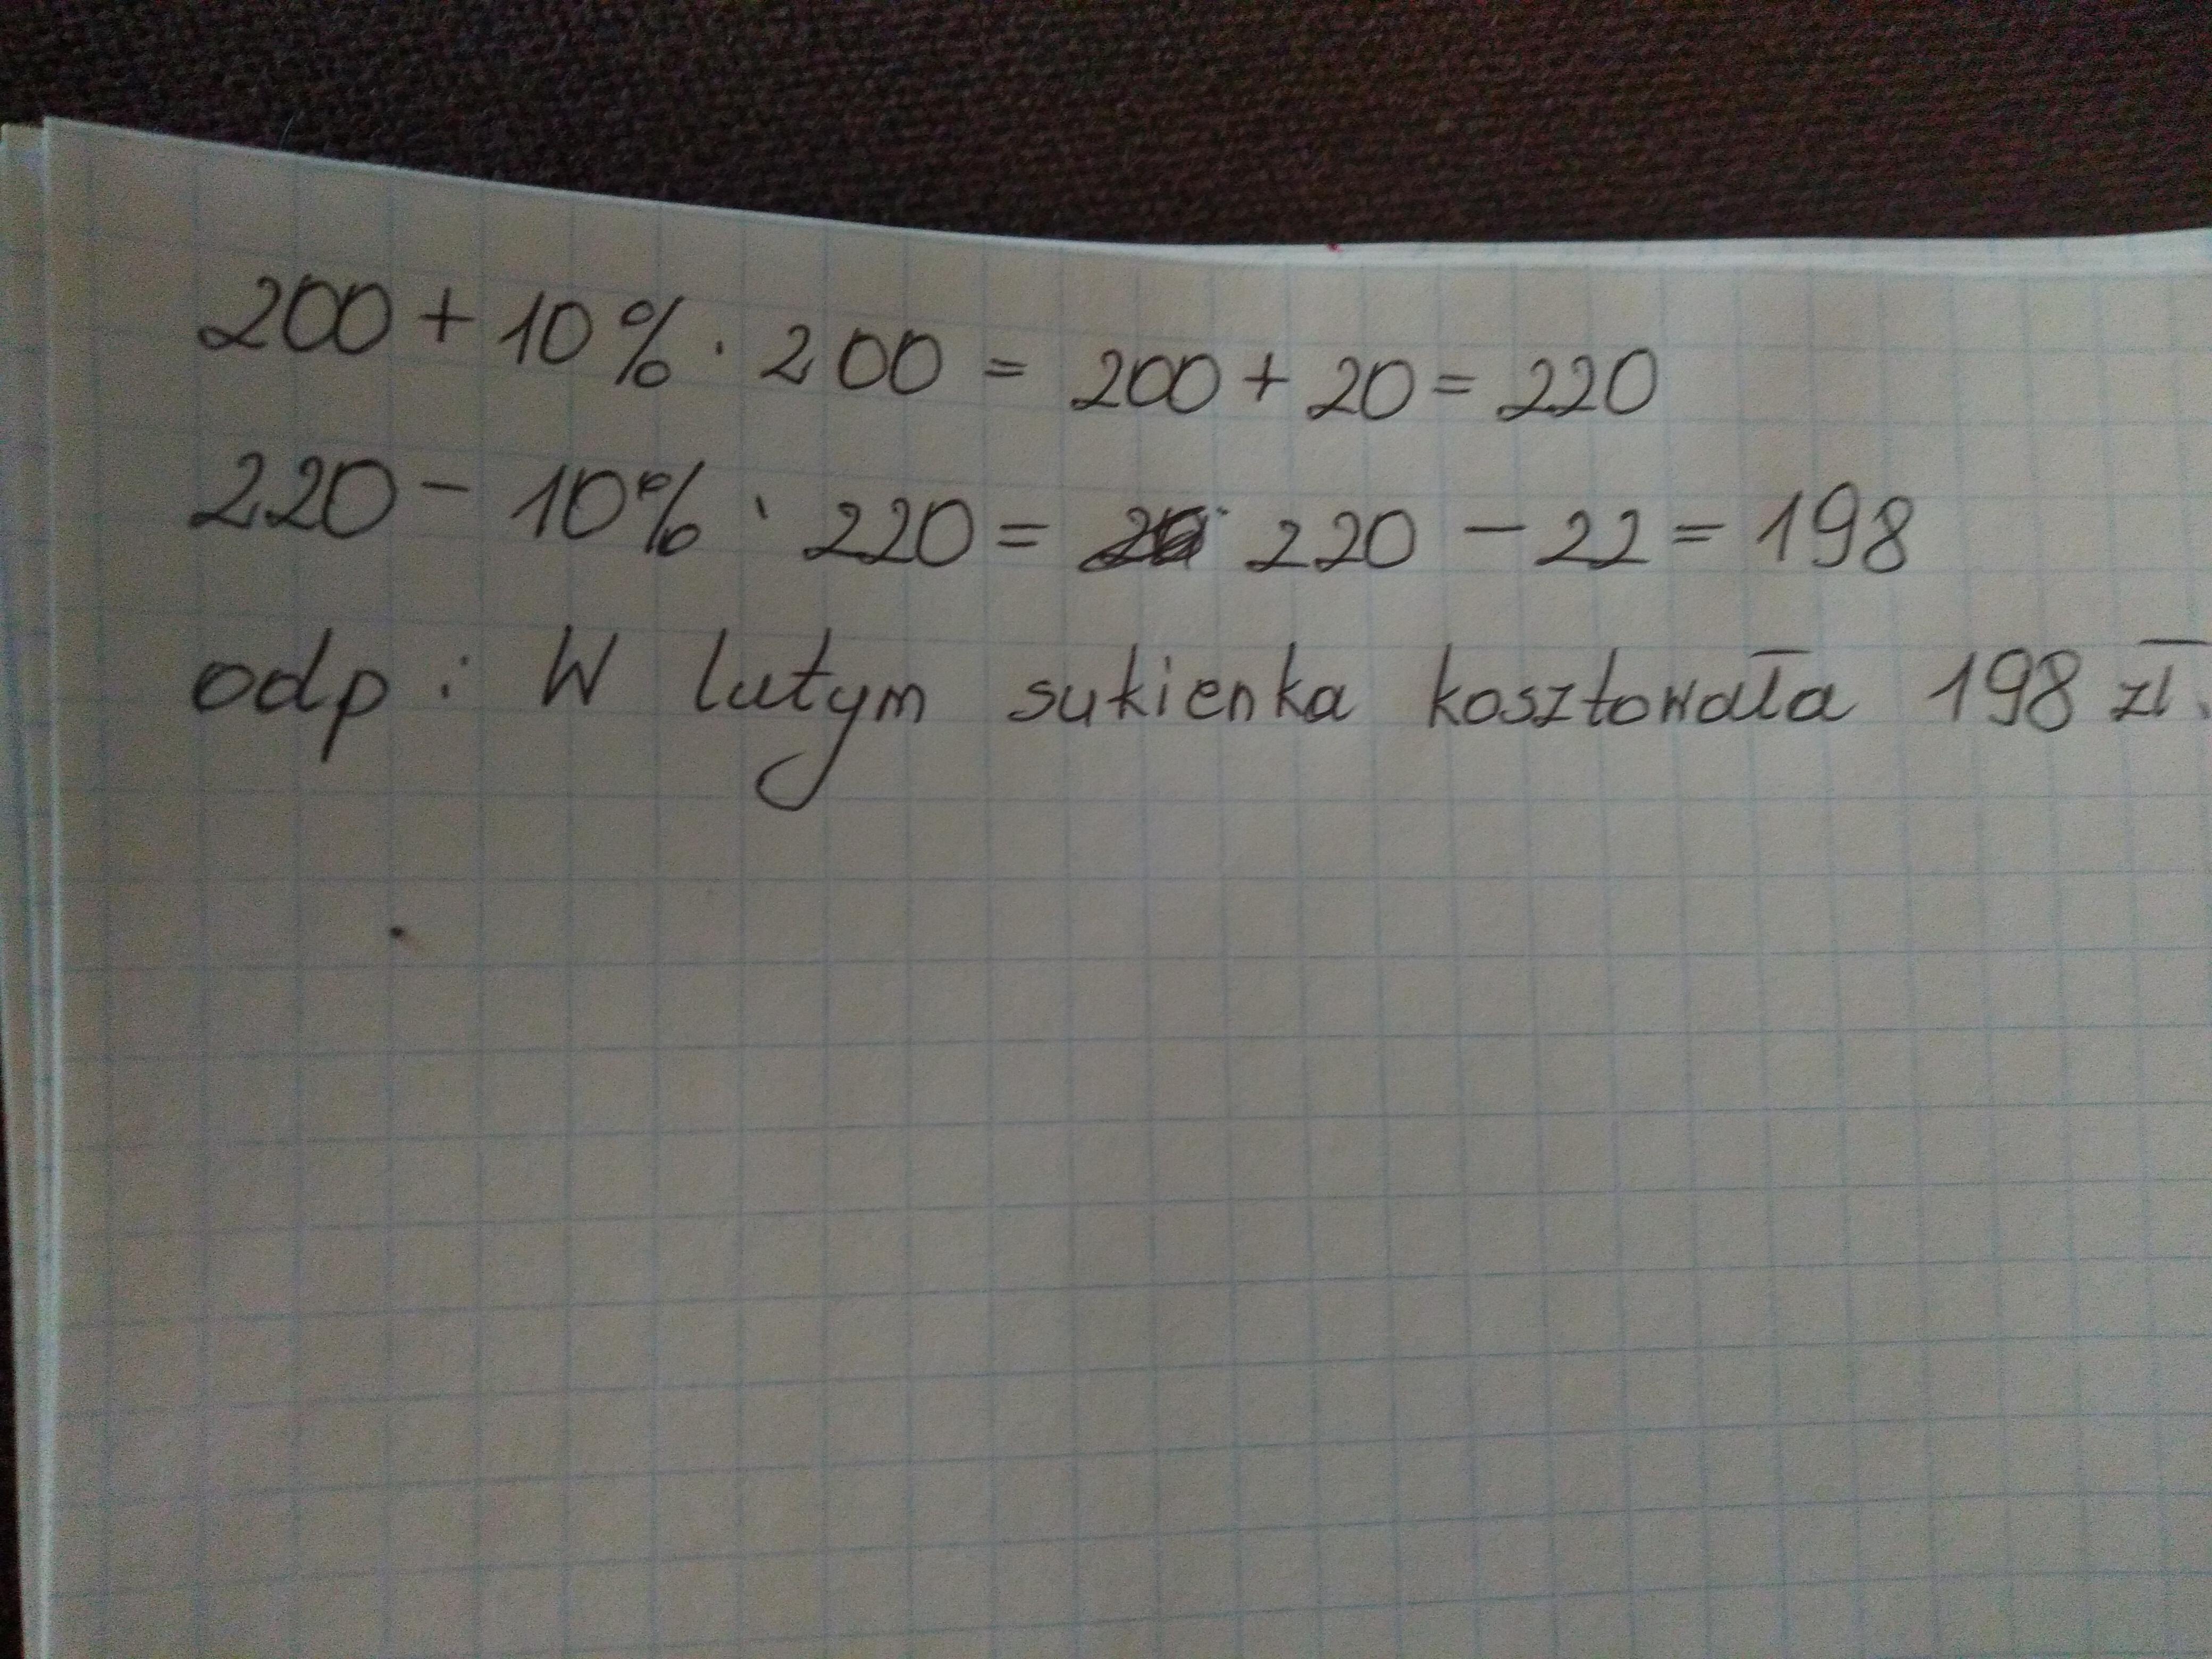 200 + 10% · 200 = 200 + 20 = 220
220 - 10% · 220 = 220 - 22 = 198
odp: W lutym sukienka kosztowała 198 zł.